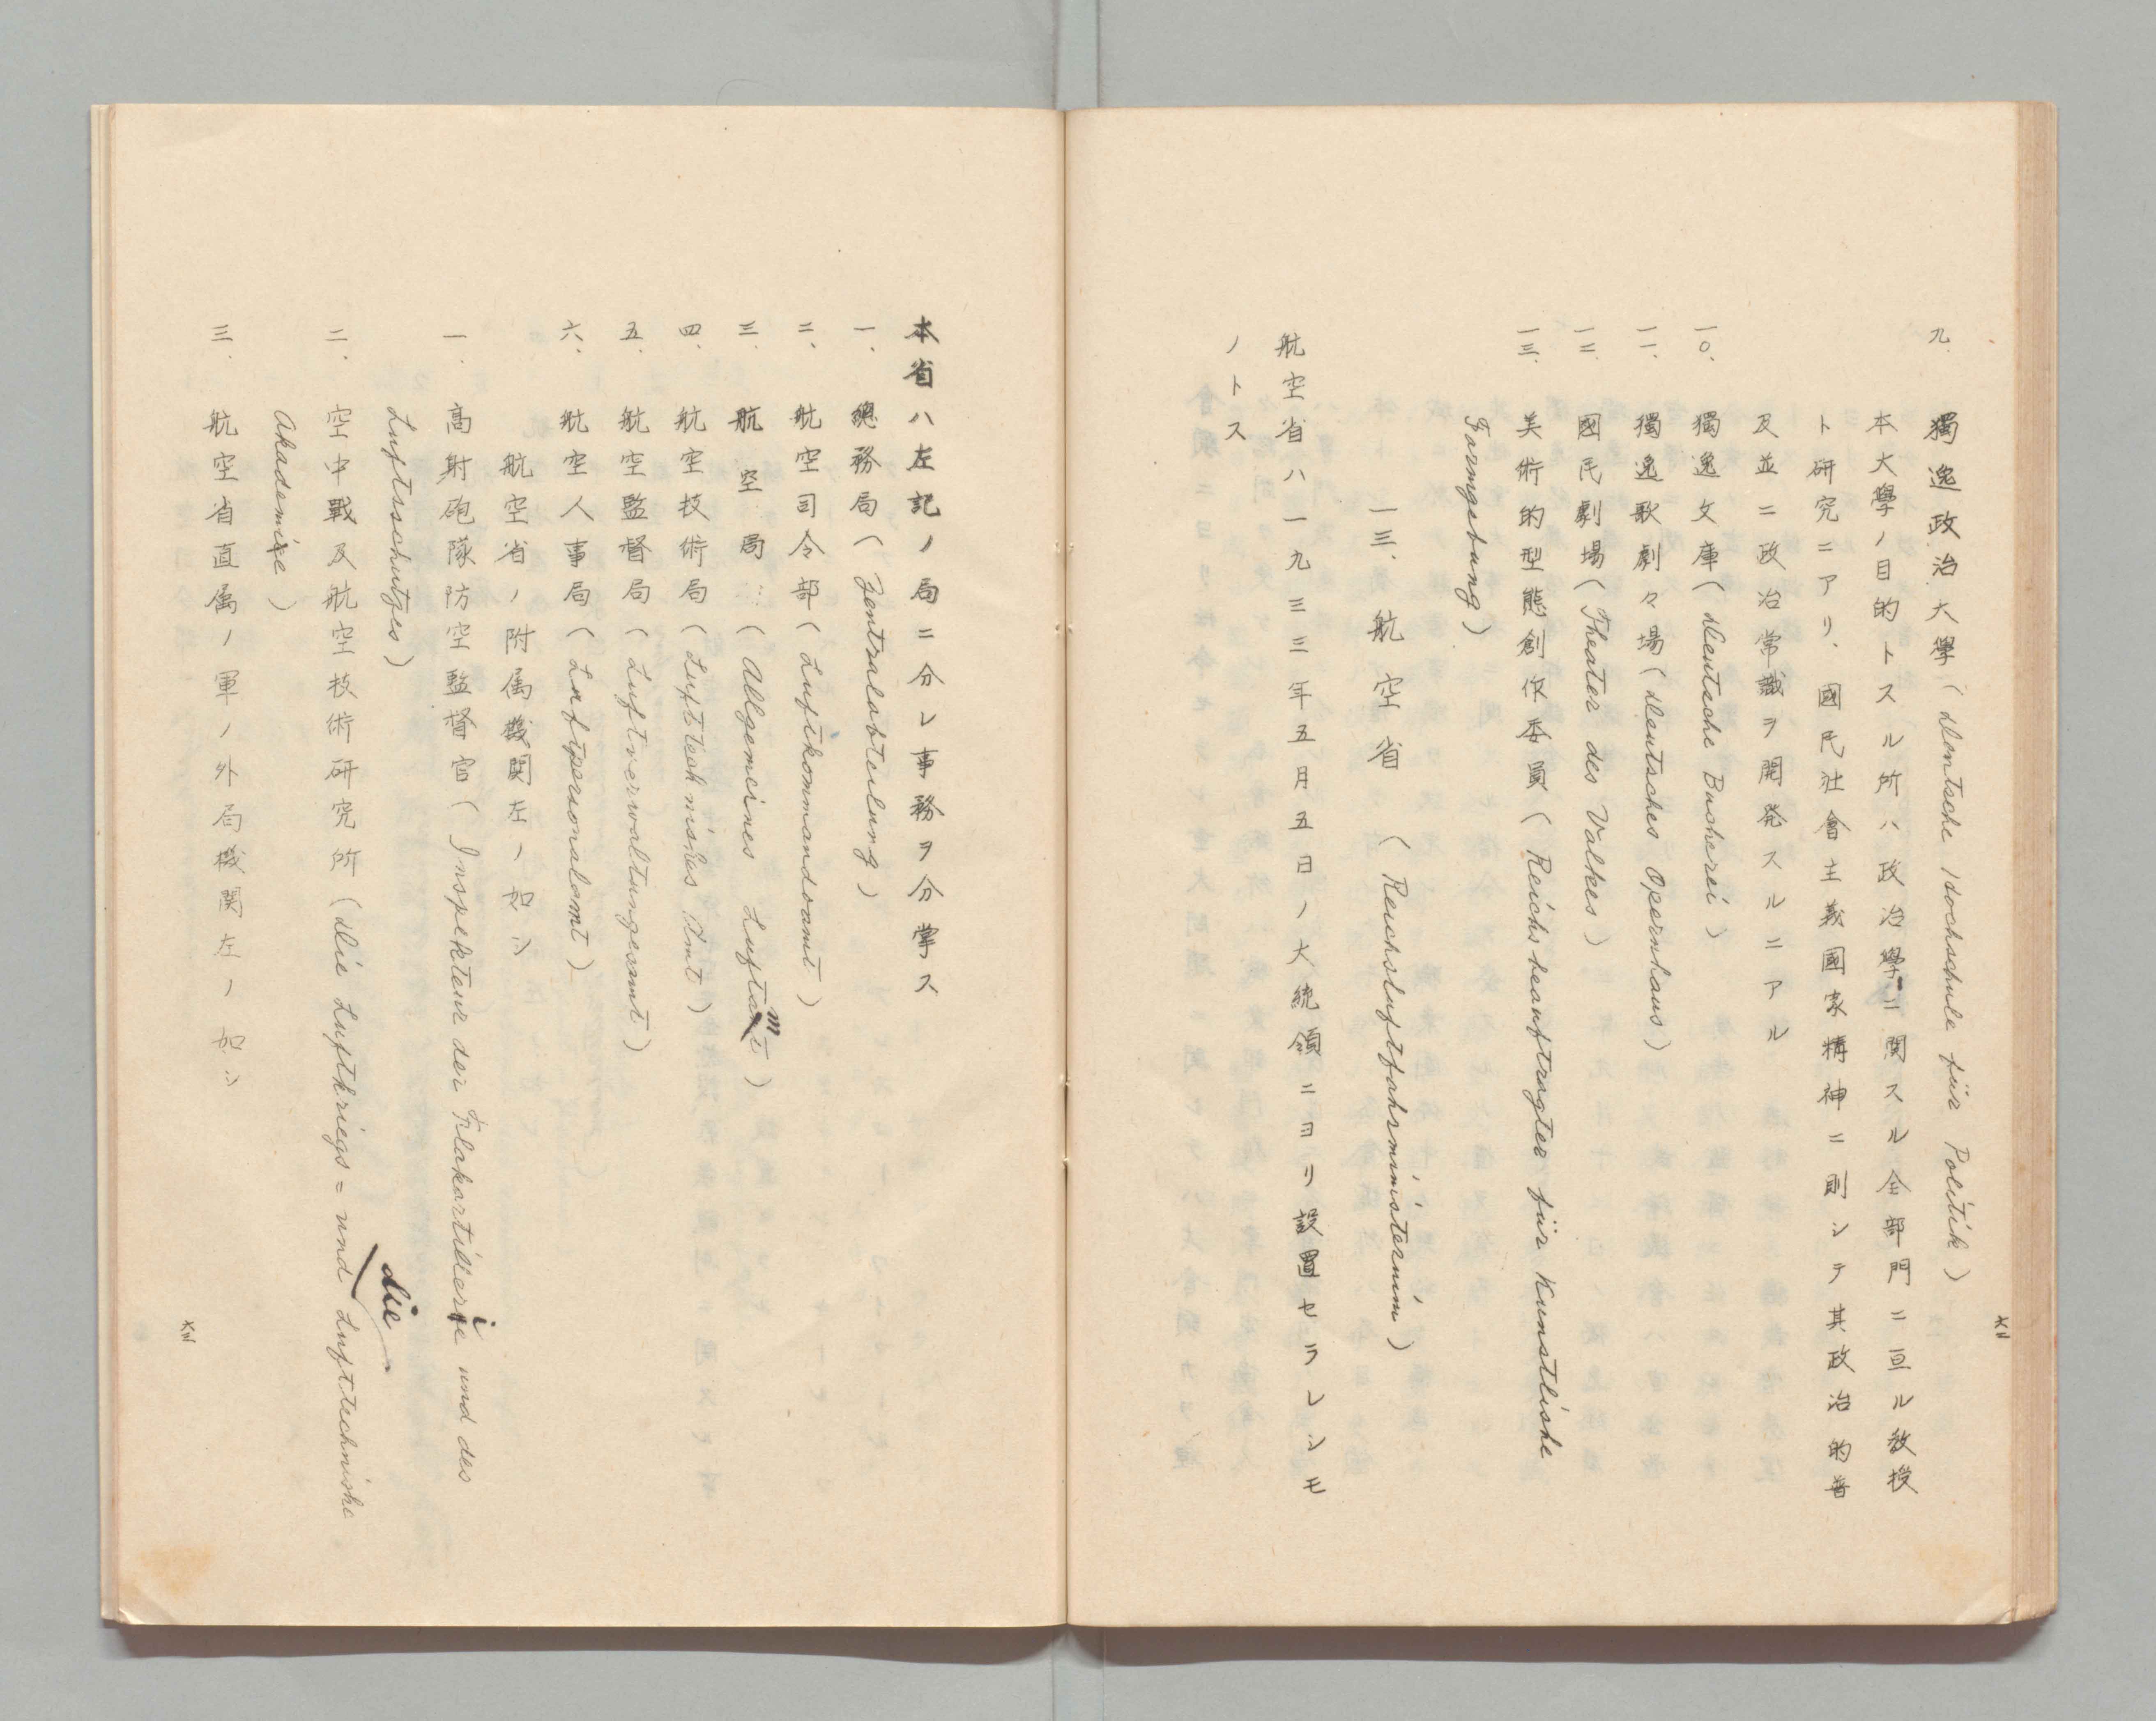 九. 獨逸政治大學(Dentsche Hochschule für Politik)
本大學ノ目的トスル所ハ政治學ニ関スル全部門ニ亘ル教授
ト研究ニアリ、國民社會主義國家精神ニ則シテ其政治的普
及並ニ政治常識ヲ開発スルニアル
一〇. 獨逸文庫(Deutsche Bucherei)
一一. 獨逸歌劇々場(Deutsches Opernhaus)
一二. 國民劇場(Theater des Valkes)
一三. 美術的型態創作委員(Reichsbeauftragter für Kunstlishe
Formgebung)
一三. 航空省 (Reichsluftfahrministerium)
航空省ハ一九三三年五月五日ノ大統領ニヨリ設置セラレシモ
ノトス
六二
本省ハ左記ノ局ニ分レ事務ヲ分掌ス
一. 總務局(Zentralabteilung)
二. 航空司令部(Luftkommandoamt)
三. 航空局 (Allgemeines Luftamt)
四. 航空技術局(Lufttechnishes Amt)
五. 航空監督局(Luftverwaltungesamt)
六. 航空人事局(Luftpersonalamt)
航空省ノ附属機関左ノ如シ
一. 高射砲隊防空監督官(Inspekteur der Flakartillerie und des
Luftsschutzes)
二. 空中戰及航空技術研究所(Die Luftkriegs= und die Lufttechnishe
Akademie)
三. 航空省直属ノ軍ノ外局機関左ノ如シ
六三